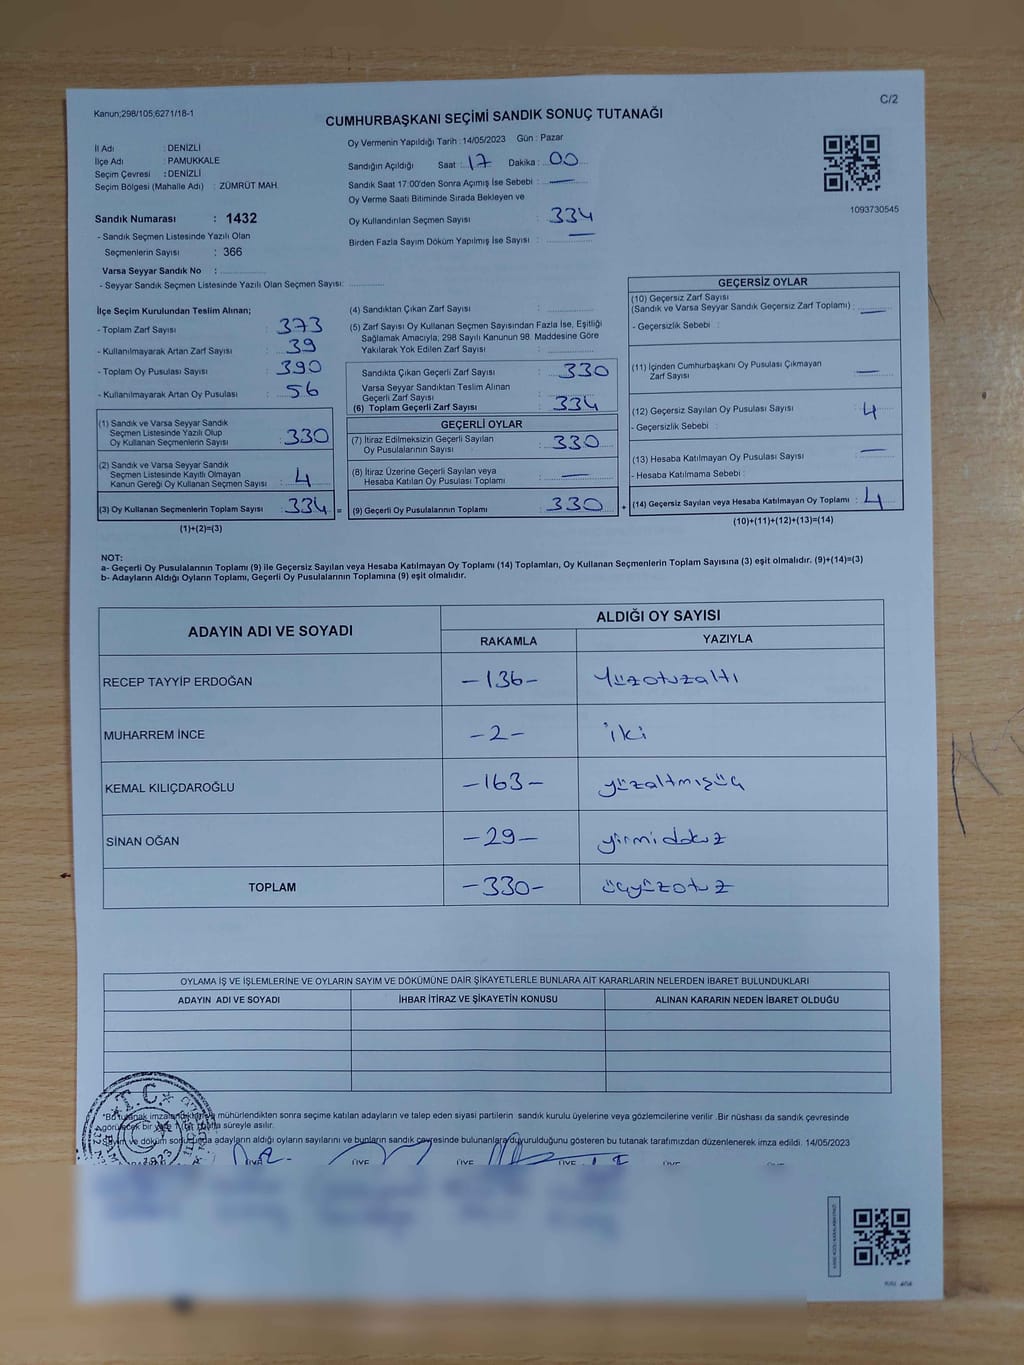 Kanun;298/105;6271/18-1
C/2
CUMHURBAŞKANI SEÇİMİ SANDIK SONUÇ TUTANAĞI
İl Adı : DENİZLİ
İlçe Adı : PAMUKKALE
Seçim Çevresi : DENİZLİ
Seçim Bölgesi (Mahalle Adı) : ZÜMRÜT MAH.
Sandık Numarası : 1432
- Sandık Seçmen Listesinde Yazılı Olan
Seçmenlerin Sayısı : 366
Varsa Seyyar Sandık No :
- Seyyar Sandık Seçmen Listesinde Yazılı Olan Seçmen Sayısı:
Oy Vermenin Yapıldığı Tarih : 14/05/2023 Gün : Pazar
Sandığın Açıldığı Saat : 17 Dakika : 00
Sandık Saat 17:00'den Sonra Açımış İse Sebebi : —
Oy Verme Saati Bitiminde Sırada Bekleyen ve
Oy Kullandırılan Seçmen Sayısı : 334
Birden Fazla Sayım Döküm Yapılmış İse Sayısı : —
1093730545
İlçe Seçim Kurulundan Teslim Alınan;
- Toplam Zarf Sayısı : 373
- Kullanılmayarak Artan Zarf Sayısı : 39
- Toplam Oy Pusulası Sayısı : 390
- Kullanılmayarak Artan Oy Pusulası : 56
(1) Sandık ve Varsa Seyyar Sandık
Seçmen Listesinde Yazılı Olup
Oy Kullanan Seçmenlerin Sayısı : 330
(2) Sandık ve Varsa Seyyar Sandık
Seçmen Listesinde Kayıtlı Olmayan
Kanun Gereği Oy Kullanan Seçmen Sayısı : 4
(3) Oy Kullanan Seçmenlerin Toplam Sayısı : 334 =
(1)+(2)=(3)
(4) Sandıktan Çıkan Zarf Sayısı :
(5) Zarf Sayısı Oy Kullanan Seçmen Sayısından Fazla İse, Eşitliği
Sağlamak Amacıyla; 298 Sayılı Kanunun 98. Maddesine Göre
Yakılarak Yok Edilen Zarf Sayısı :
Sandıkta Çıkan Geçerli Zarf Sayısı : 330
Varsa Seyyar Sandıktan Teslim Alınan
Geçerli Zarf Sayısı :
(6) Toplam Geçerli Zarf Sayısı : 334
GEÇERLİ OYLAR
(7) İtiraz Edilmeksizin Geçerli Sayılan
Oy Pusulalarının Sayısı : 330
(8) İtiraz Üzerine Geçerli Sayılan veya
Hesaba Katılan Oy Pusulası Toplamı : —
(9) Geçerli Oy Pusulalarının Toplamı : 330 +
GEÇERSİZ OYLAR
(10) Geçersiz Zarf Sayısı
(Sandık ve Varsa Seyyar Sandık Geçersiz Zarf Toplamı) : —
- Geçersizlik Sebebi :
(11) İçinden Cumhurbaşkanı Oy Pusulası Çıkmayan
Zarf Sayısı : —
(12) Geçersiz Sayılan Oy Pusulası Sayısı : 4
- Geçersizlik Sebebi :
(13) Hesaba Katılmayan Oy Pusulası Sayısı : —
- Hesaba Katılmama Sebebi :
(14) Geçersiz Sayılan veya Hesaba Katılmayan Oy Toplamı : 4
(10)+(11)+(12)+(13)=(14)
NOT:
a- Geçerli Oy Pusulalarının Toplamı (9) ile Geçersiz Sayılan veya Hesaba Katılmayan Oy Toplamı (14) Toplamları, Oy Kullanan Seçmenlerin Toplam Sayısına (3) eşit olmalıdır. (9)+(14)=(3)
b- Adayların Aldığı Oyların Toplamı, Geçerli Oy Pusulalarının Toplamına (9) eşit olmalıdır.
ADAYIN ADI VE SOYADI ALDIĞI OY SAYISI
RAKAMLA YAZIYLA
RECEP TAYYİP ERDOĞAN -136- Yüzotuzaltı
MUHARREM İNCE -2- iki
KEMAL KILIÇDAROĞLU -163- yüzaltmışüç
SİNAN OĞAN -29- yirmidokuz
TOPLAM -330- üçyüzotuz
OYLAMA İŞ VE İŞLEMLERİNE VE OYLARIN SAYIM VE DÖKÜMÜNE DAİR ŞİKAYETLERLE BUNLARA AİT KARARLARIN NELERDEN İBARET BULUNDUKLARI
ADAYIN ADI VE SOYADI İHBAR İTİRAZ VE ŞİKAYETİN KONUSU ALINAN KARARIN NEDEN İBARET OLDUĞU
T.C.
*Bu tutanak imzalandıktan ve mühürlendikten sonra seçime katılan adayların ve talep eden siyasi partilerin sandık kurulu üyelerine veya gözlemcilerine verilir .Bir nüshası da sandık çevresinde
görülecek bir yere 1 (bir) hafta süreyle asılır.
Sayım ve döküm sonucunda adayların aldığı oyların sayılarını ve bunların sandık çevresinde bulunanlara duyurulduğunu gösteren bu tutanak tarafımızdan düzenlenerek imza edildi. 14/05/2023
ÜYE ÜYE ÜYE ÜYE ÜYE